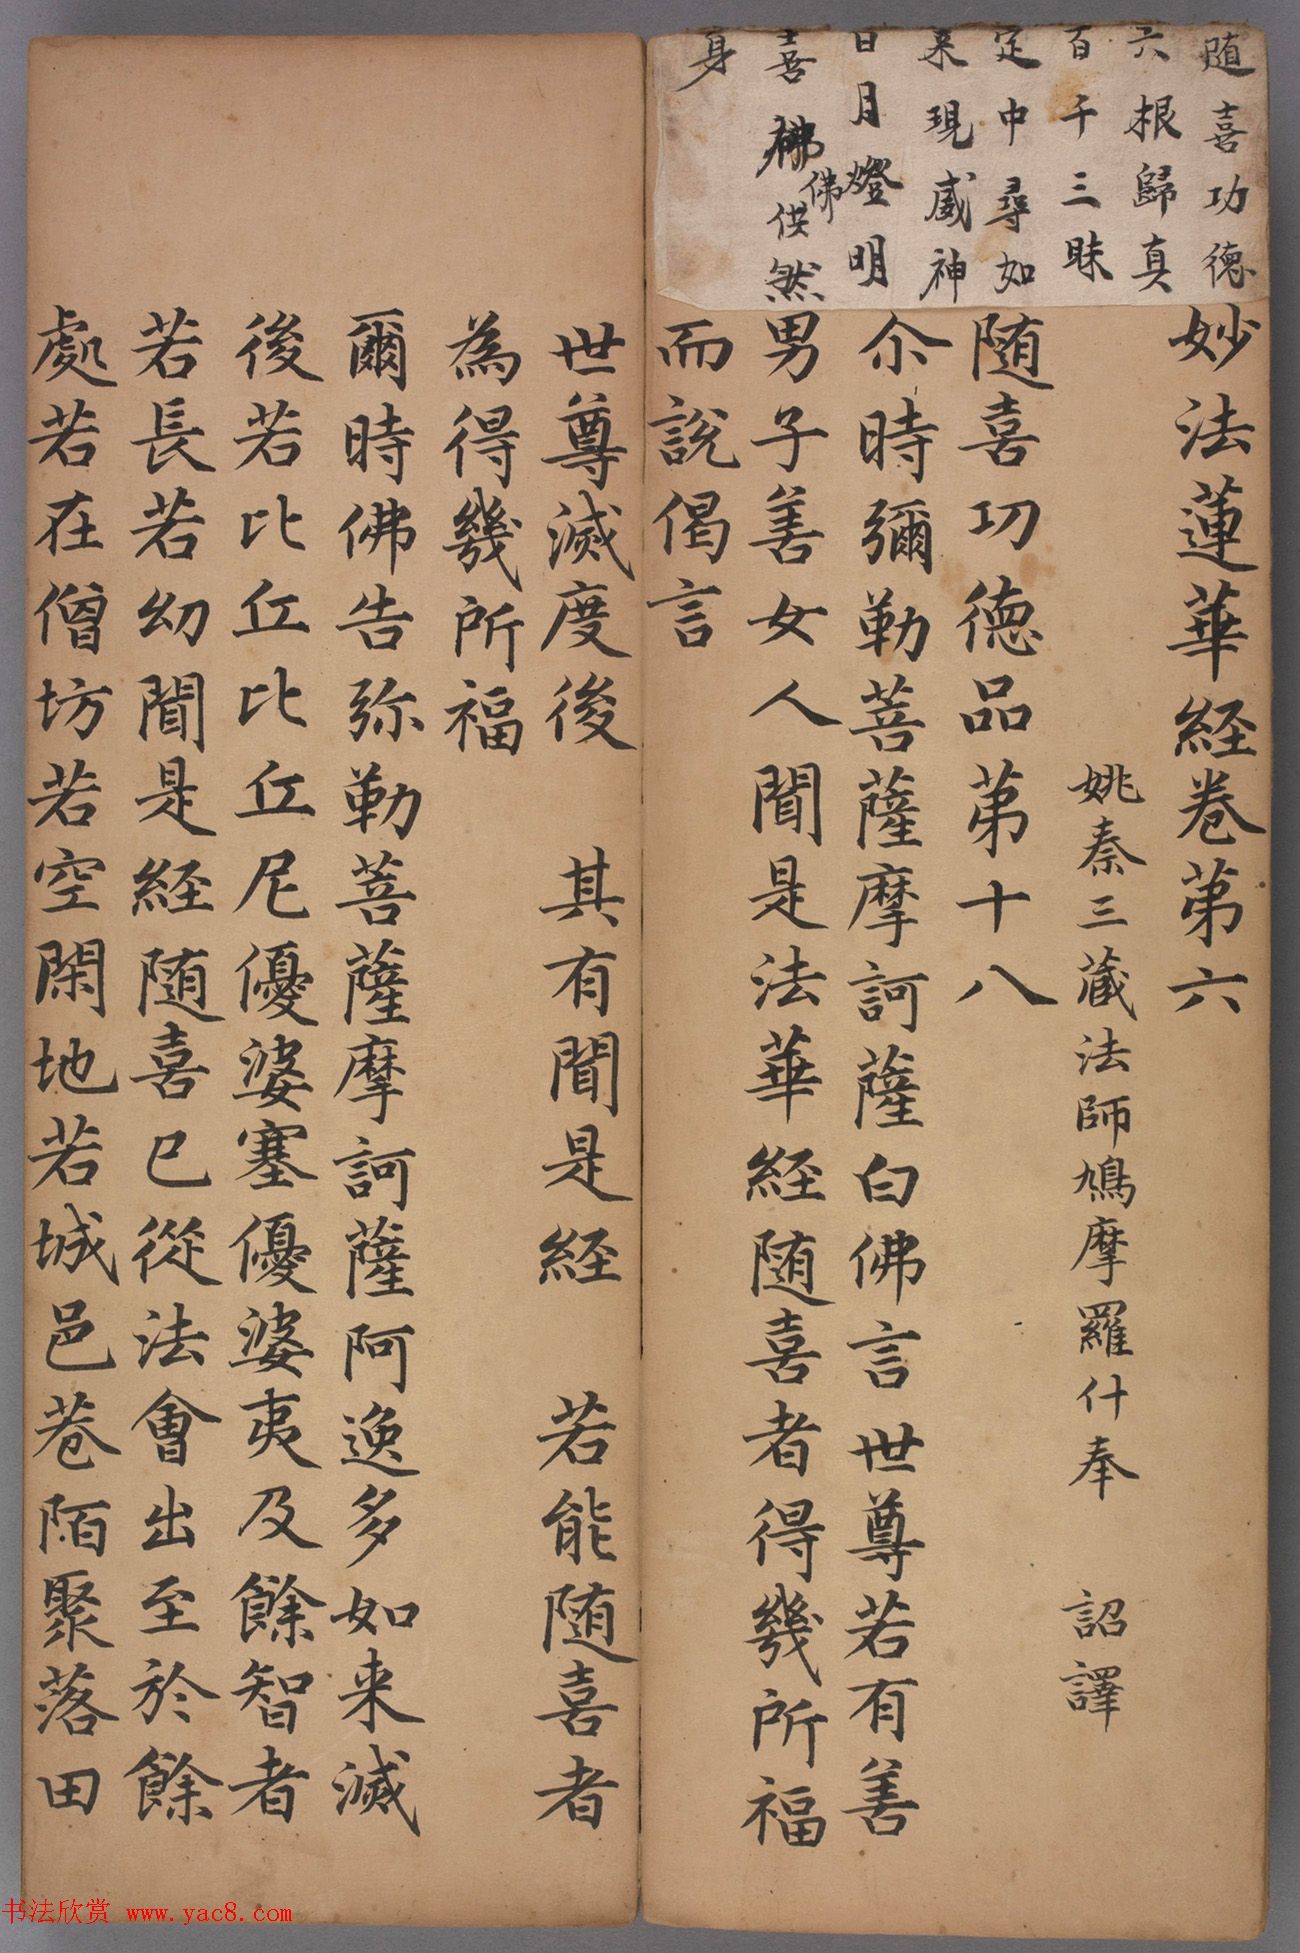 随喜功德
六根歸真
百千三昧
定中尋如
来現威神
日月燈明
佛
喜佛供然
身
妙法蓮華経卷第六
姚秦三藏法師鳩摩羅什奉 詔譯
随喜功德品第十八
尒時彌勒菩薩摩訶薩白佛言世尊若有善
男子善女人聞是法華経随喜者得幾所福
而說偈言
世尊滅度後 其有聞是経 若能随喜者
為得幾所福
爾時佛告弥勒菩薩摩訶薩阿逸多如来滅
後若比丘比丘尼優婆塞優婆夷及餘智者
若長若幼聞是経随喜已從法會出至於餘
處若在僧坊若空閑地若城邑巷陌聚落田
书法欣赏 www.yac8.com